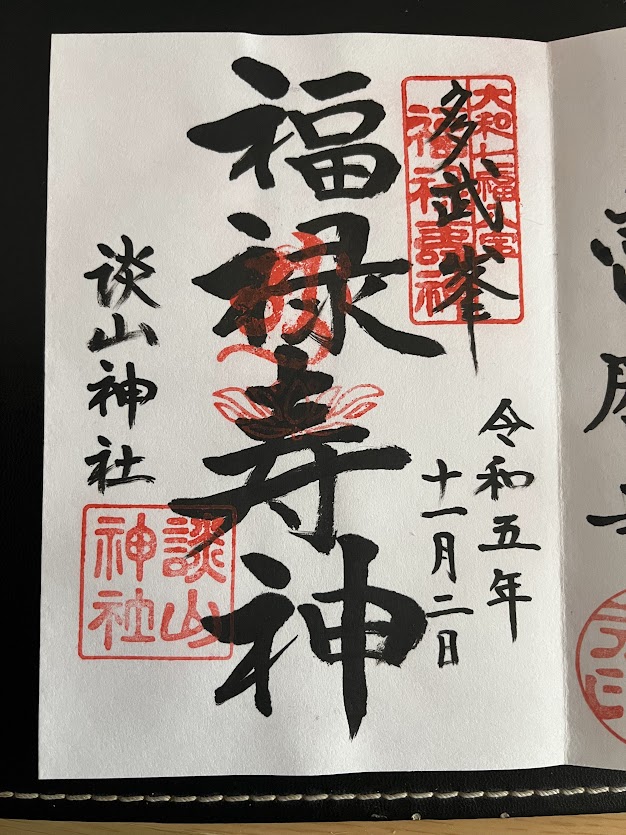 多武峯
大和七福八宝
福禄壽神
令和五年
十一月二日
福禄寿神
談山神社
談山
神社